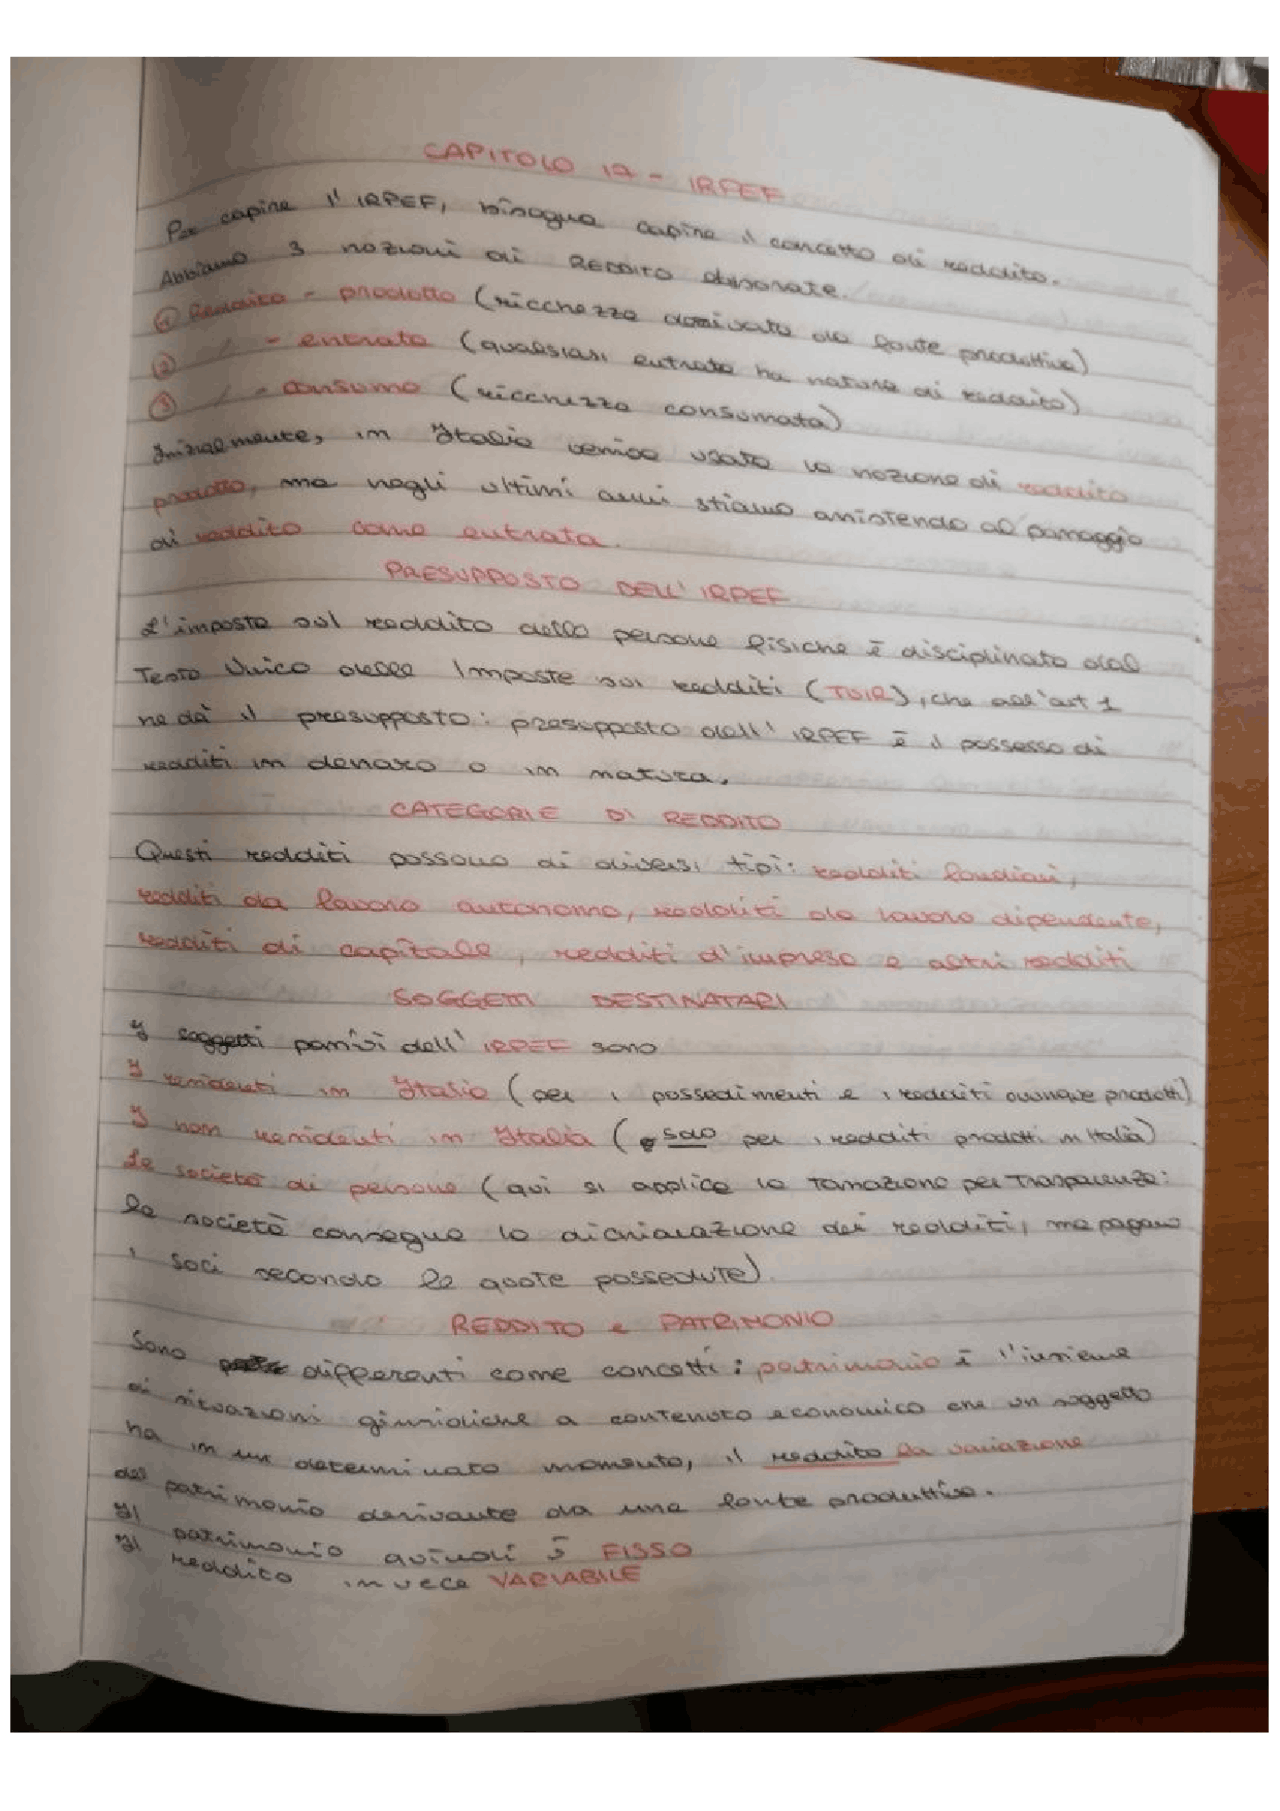 CAPITOLO 17 - IRPEF
Per capire l'IRPEF, bisogna capire il concetto di reddito.
Abbiamo 3 nozioni di REDDITO elaborate.
① Reddito - prodotto (ricchezza derivata da fonte produttiva)
② / - entrata (qualsiasi entrata ha natura di reddito)
③ / - consumo (ricchezza consumata)
Inizialmente, in Italia veniva usata la nozione di reddito
prodotto, ma negli ultimi anni stiamo assistendo al passaggio
di reddito come entrata.
PRESUPPOSTO DELL'IRPEF
L'imposta sul reddito delle persone fisiche è disciplinato dal
Testo Unico delle Imposte sui redditi (TUIR), che all'art 1
ne dà il presupposto: presupposto dell'IRPEF è il possesso di
redditi in denaro o in natura.
CATEGORIE DI REDDITO
Questi redditi possono di diversi tipi: redditi fondiari,
redditi da lavoro autonomo, redditi da lavoro dipendente,
redditi di capitale, redditi d'impresa e altri redditi
SOGGETTI DESTINATARI
I soggetti passivi dell'IRPEF sono
I residenti in Italia (per i possedimenti e i redditi ovunque prodotti)
I non residenti in Italia (solo per i redditi prodotti in Italia)
Le società di persone (qui si applica la tassazione per trasparenza:
la società consegue la dichiarazione dei redditi, ma pagano
i soci secondo le quote possedute).
REDDITO e PATRIMONIO
Sono differenti come concetti: patrimonio è l'insieme
di situazioni giuridiche a contenuto economico che un soggetto
ha in un determinato momento, il reddito la variazione
del patrimonio derivante da una fonte produttiva.
Il patrimonio quindi è FISSO
Il reddito invece VARIABILE